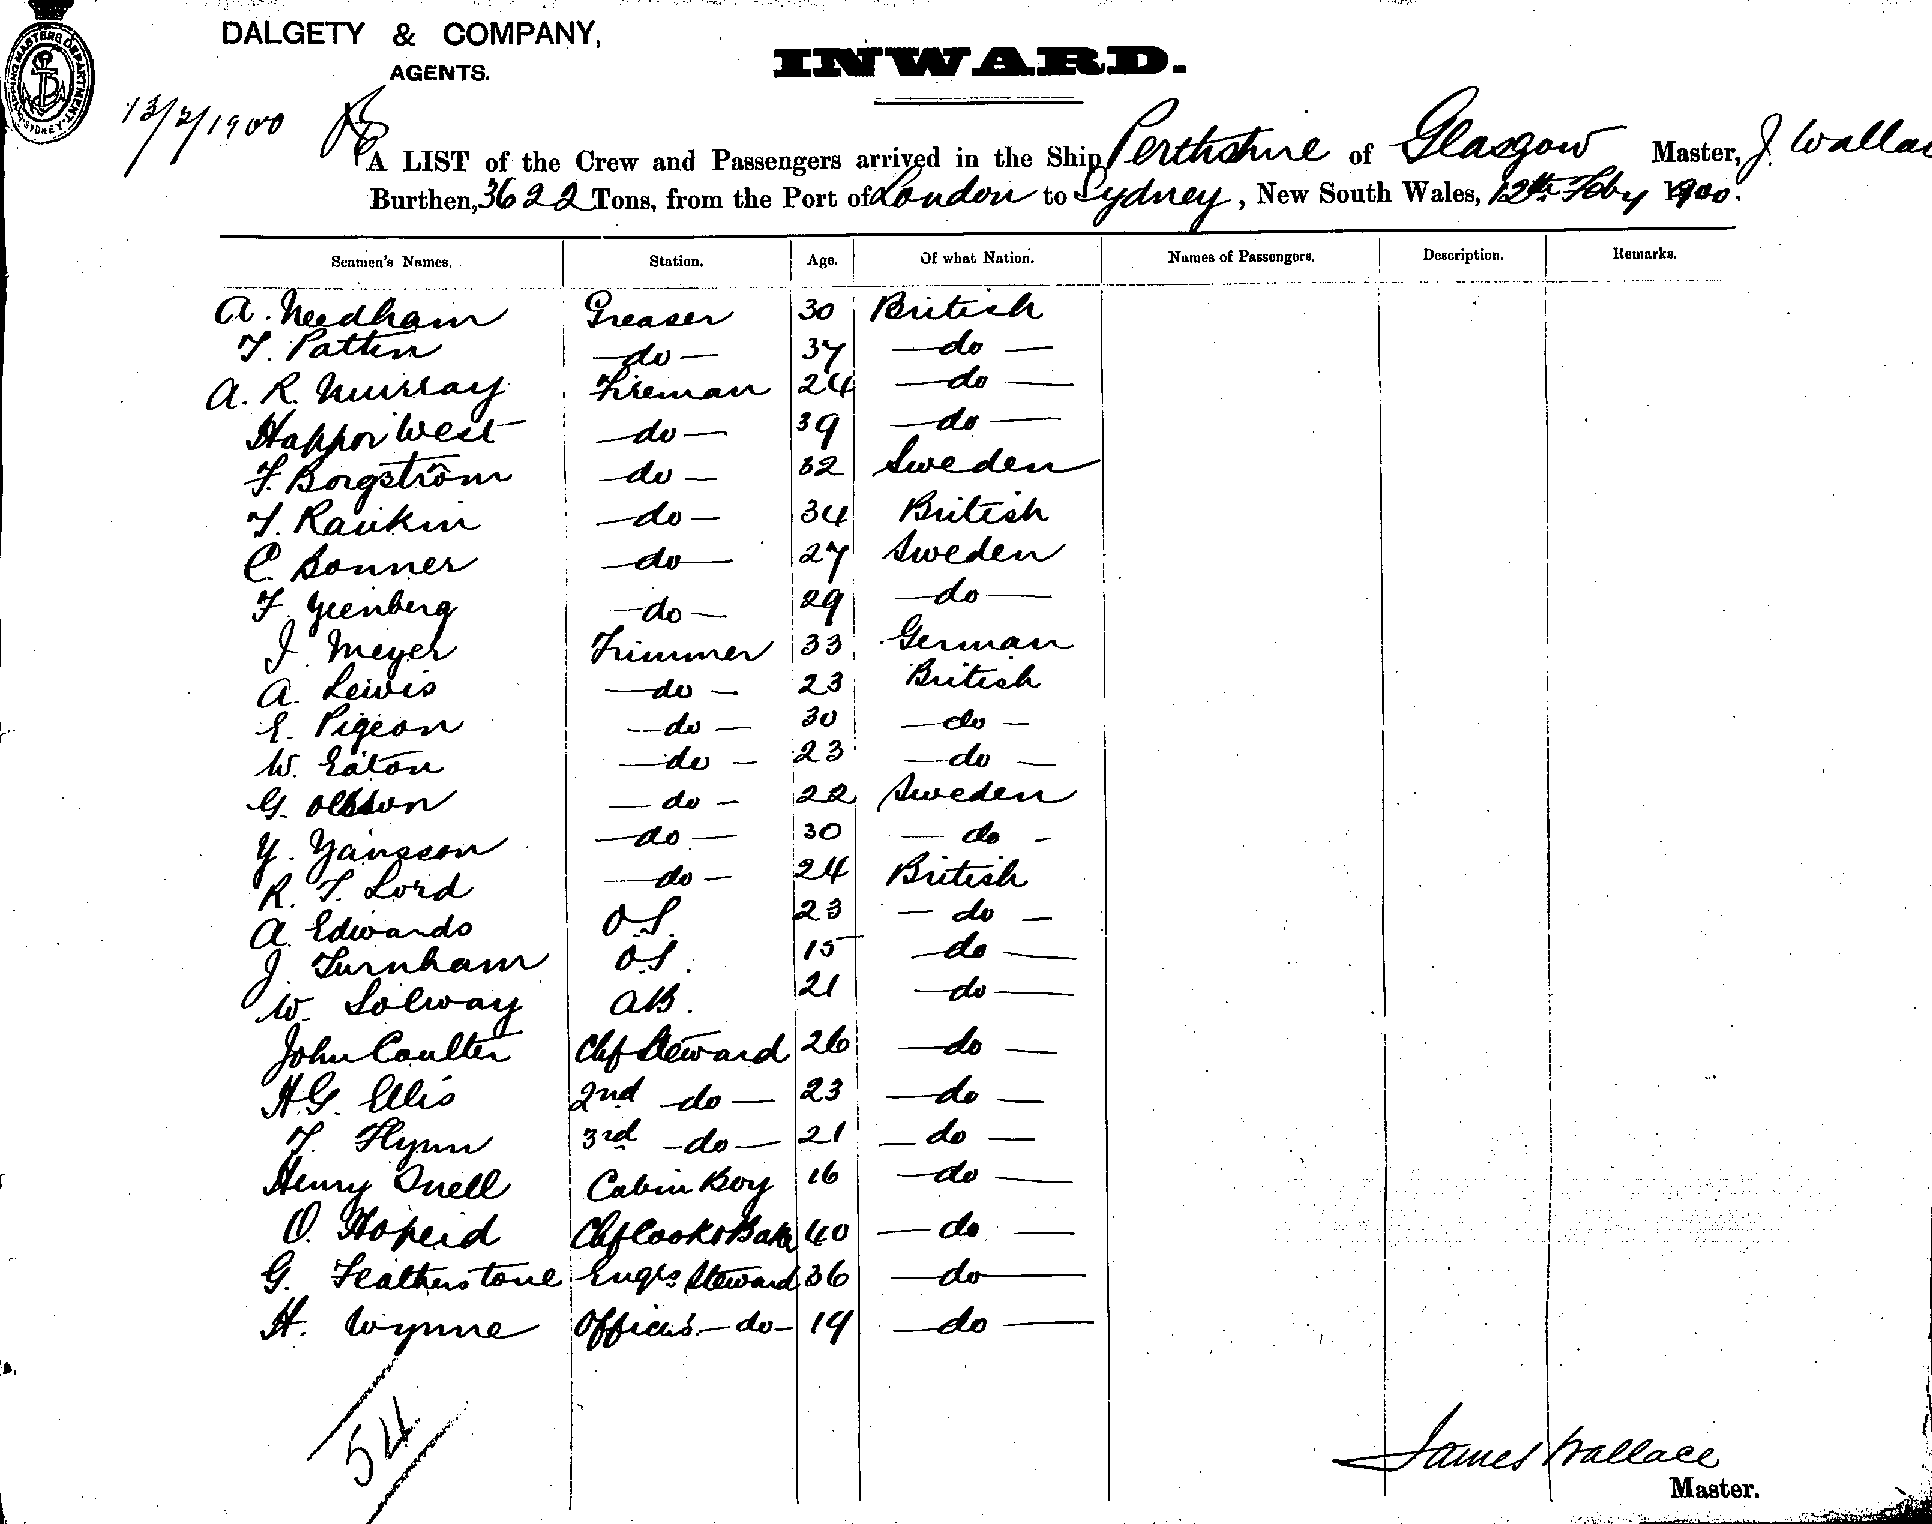 SHIPPING MASTERS DEPARTMENT. SYDNEY
DALGETY & COMPANY,
AGENTS.
INWARD.
13/2/1900
A LIST of the Crew and Passengers arrived in the Ship Perthshire of Glasgow Master, J. Wallac
Burthen, 3622 Tons, from the Port of London to Sydney, New South Wales, 12th Feby 1900.
Seamen's Names. Station. Age. Of what Nation. Names of Passengers. Description. Remarks.
A. Needham Greaser 30 British
T. Patten —do— 37 —do—
A. R. Murray Fireman 24 —do—
West —do— 39 —do—
F. Borgström —do— 32 Sweden
T. Rankin —do— 34 British
C. Bonner —do— 27 Sweden
F. —do— 29 —do—
J. Meyer Trimmer 33 German
A. Lewis —do— 23 British
E. Pigeon —do— 30 —do—
W. Eaton —do— 23 —do—
G. Olsson —do— 22 Sweden
Y. Yansson —do— 30 —do—
R. T. Lord —do— 24 British
A. Edwards O.S. 23 —do—
J. Turnham O.S. 15 —do—
W. Solway AB. 21 —do—
John Coulter Chf Steward 26 —do—
H.G. Ellis 2nd —do— 23 —do—
T. Flynn 3rd —do— 21 —do—
Henry Snell Cabin Boy 16 —do—
O. Chf Cook & Baker 40 —do—
G. Featherstone Engrs Steward 36 —do—
H. Wynne Officers —do— 19 —do—
54
James Wallace
Master.